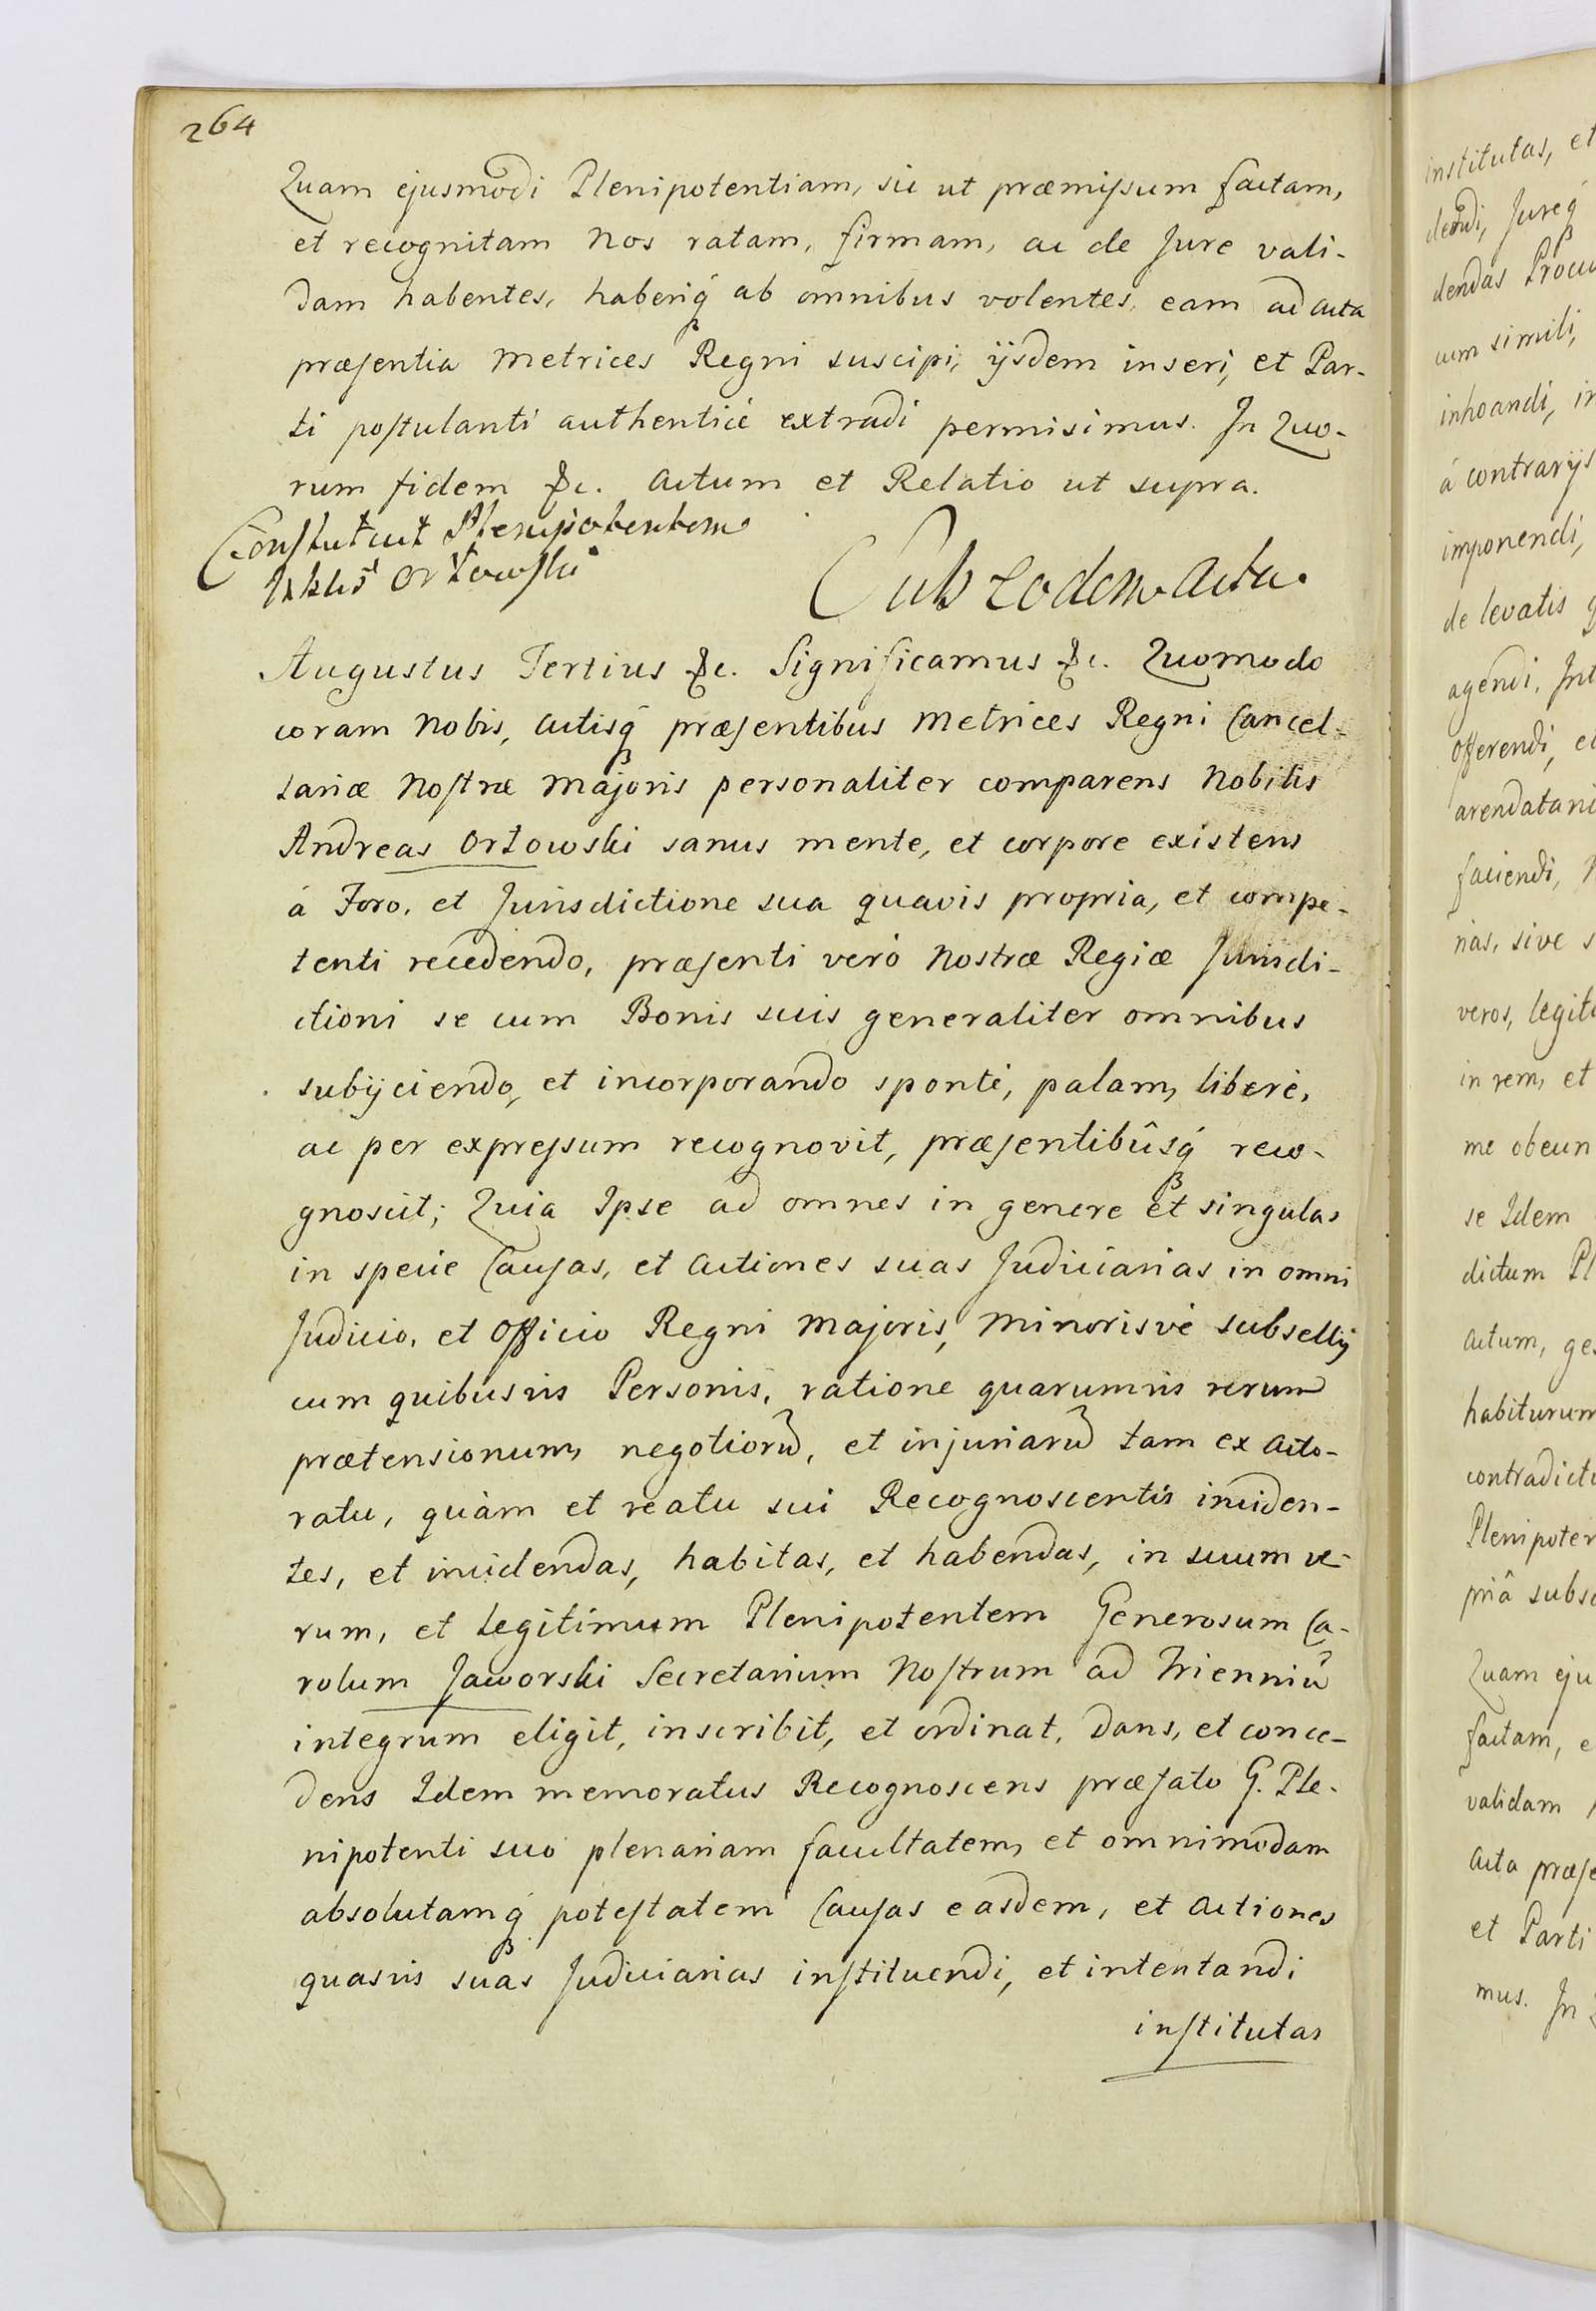 264
Quam ejusmodi Plenipotentiam, sic ut præmiſsum factam,
et recognitam Nos ratam, firmam, ac de Jure vali-
dam habentes, haberiq́ ab omnibus volentes, eam ad acta
præſentia Metrices Regni suscipi, ijsdem inseri, et Par-
ti poſtulanti authenticè extradi permisimus. In Quo-
rum fidem &c. Actum et Relatio ut supra.
Conſtituit Plenipotentem
Orłowſki
Sub eodem Actu.
Augustus Tertius &c. Significamus &c. Quomodo
coram Nobis, Actisq́ præſentibus Metrices Regni Cancel-
lariæ Noſtræ Majoris personaliter comparens Nobilis
Andreas Orłowski sanus mente, et corpore existens
á Foro, et Jurisdictione sua quavis propria, et compe-
tenti recedendo, præſenti veró Nostræ Regiæ Jurisdi-
ctioni se cum Bonis suis generaliter omnibus
subijciendo, et incorporando sponté, palam, liberè,
ac per expreſsum recognovit, præſentibûsq́ reco-
gnoscit; Quia Ipse ad omnes in genere et singulas
in specie Cauſas, et Actiones suas Judiciarias in omni
Judicio, et Officio Regni Majoris, Minorisvè subsellij
cum quibusvis Personis, ratione quarumvis rerum
prætensionum, negotiorũ, et injuriarũ tam ex Acto-
ratu, quàm et reatu sui Recognoscentis inciden-
tes, et incidendas, habitas, et habendas, in suum ve-
rum, et legitimum Plenipotentem Generosum Ca-
rolum Jaworski Secretarium Noſtrum ad Trienniũ
integrum eligit, inscribit, et ordinat, dans, et conce-
dens Idem memoratus Recognoscens præfato G. Ple-
nipotenti suo plenariam facultatem, et omnimodam
absolutamq́ poteſtatem Cauſas easdem, et Actiones
quasvis suas Judiciarias inſtituendi, et intentandi
inſtitutas
institutas, et
dendi, Jureq́
dendas Procu
cum simili,
inhoandi, in
á contrarijs
imponendi,
de levatis
agendi, Int
offerendi, et
arendatari
faciendi,
rias, sive s
veros, legit
in rem, et
me obeun
se Idem
dictum Pl
actum, ges
habiturum
contradict
Plenipoten
priâ subsc
Quam eju
factam, e
validam
Acta præſe
et Parti
mus. In